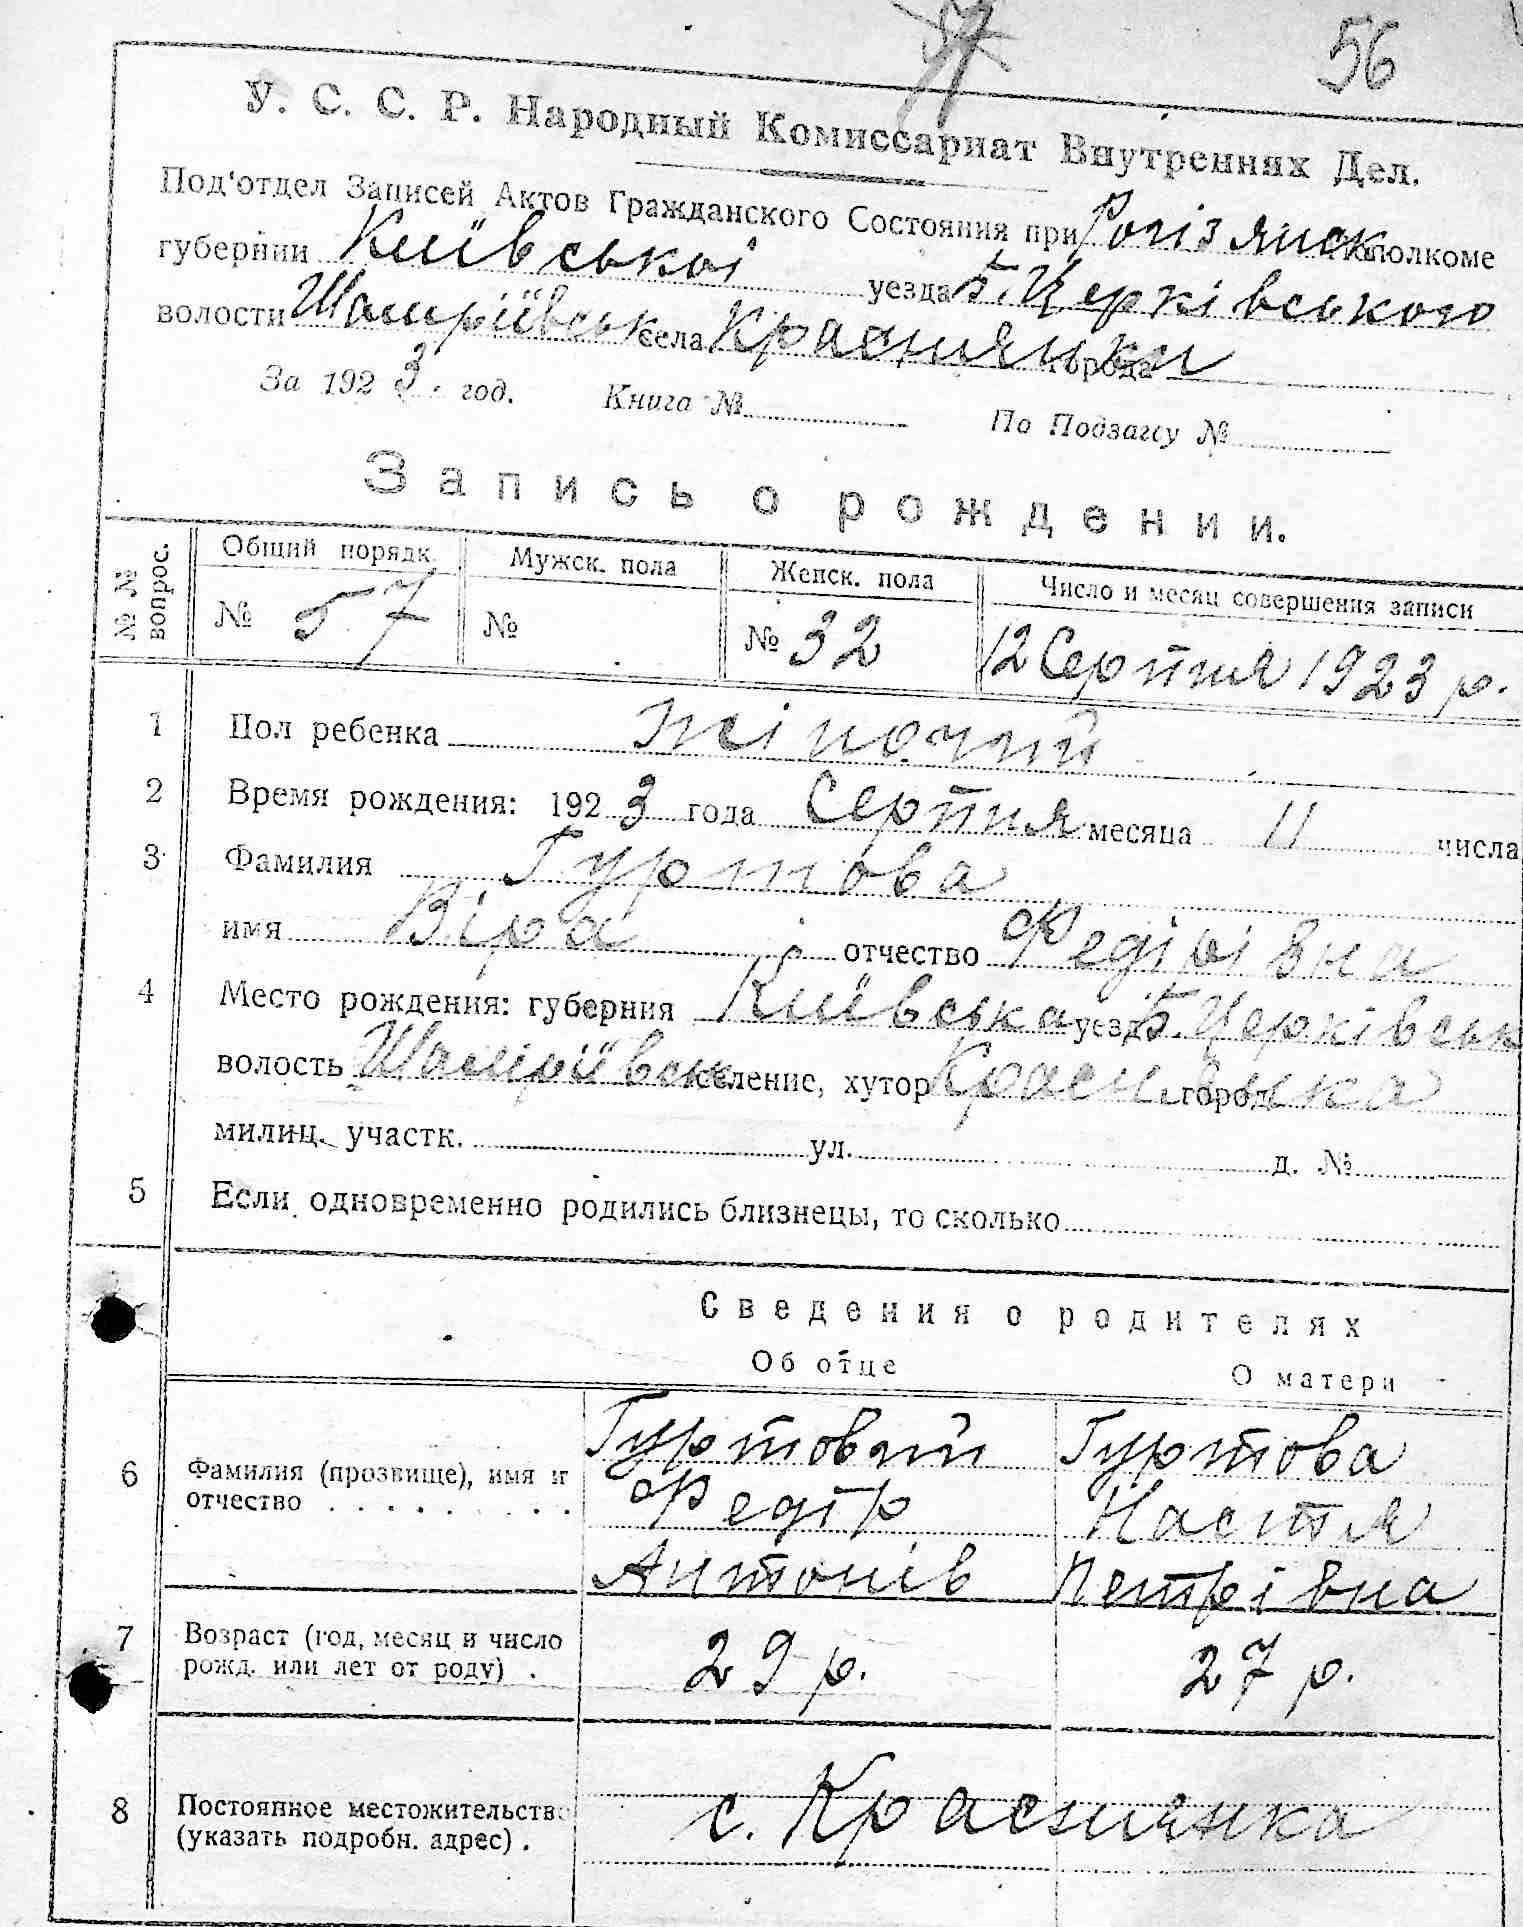 56
У. С. С. Р. Народный Комиссариат Внутренних Дел.
Под'отдел Записей Актов Гражданского Состояния при Рогізянск исполкоме
губернии Київської уезда Б. Церківського
волости Шамріївськ села Краснянки города
За 1923. год. Книга № По Подзагсу №
Запись о рождении.
№ № вопрос. Общий порядк. Мужск. пола Женск. пола Число и месяц совершения записи
№ 57 № № 32 12 Серпня 1923 р.
1 Пол ребенка жіночий
2 Время рождения: 1923 года Серпня месяца 11 числа
3 Фамилия Гуртова
имя Віра отчество Федіівна
4 Место рождения: губерния Київська уезд Б. Церківськ
волость Шамріївськ селение, хутор Краснянка город
милиц. участк. ул. д. №
5 Если одновременно родились близнецы, то сколько
Сведения о родителях
Об отце О матери
Гуртовий Гуртова
6 Фамилия (прозвище), имя и
отчество Федір Настя
Антонів Петрівна
7 Возраст (год, месяц и число
рожд. или лет от роду) . 29 р. 27 р.
8 Постоянное местожительство
(указать подробн. адрес) . с. Краснянка